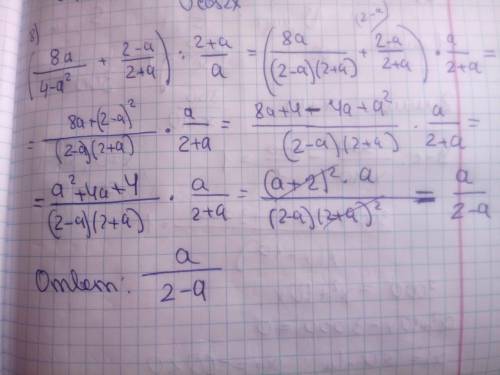 8)
(8a/(4-a²) + (2-a)/(2+a)) : (2+a)/a = (8a/((2-a)(2+a)) + (2-a)/(2+a) (2-a)) · a/(2+a) =
= (8a+(2-a)²)/((2-a)(2+a)) · a/(2+a) = (8a+4-4a+a²)/((2-a)(2+a)) · a/(2+a) =
= (a²+4a+4)/((2-a)(2+a)) · a/(2+a) = ((a+2)² · a)/((2-a)(2+a)²) = a/(2-a)
Ответ: a/(2-a)